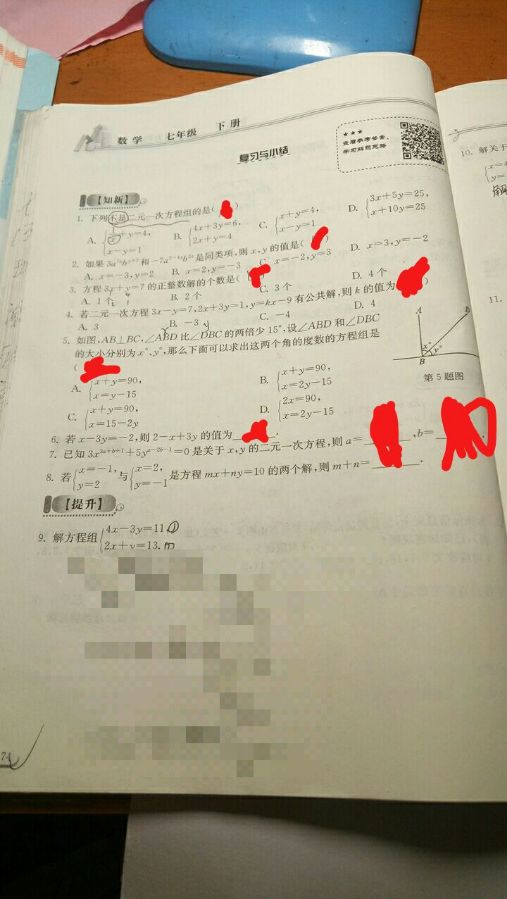 数学 七年级 下册
★★★
查看参考答案,
学习解题思路
复习与小结
【知新】
1. 下列不是二元一次方程组的是(
x+y=4,
x-y=1
B. 4x+3y=6,
2x+y=4
C. x+y=4,
x-y=1
D. 3x+5y=25,
x+10y=25
2. 如果
是同类项,则x,y的值是(
A. x=-3,y=2 B. x=2,y=-3 C. x=-2,y=3 D. x=3,y=-2
3. 方程3x+y=7的正整数解的个数是(
A. 1个 B. 2个 C. 3个 D. 4个
4. 若二元一次方程3x-y=7,2x+3y=1,y=kx-9有公共解,则k的值为
A. 3 B. -3 C. -4 D. 4
5. 如图,AB⊥BC,∠ABD比∠DBC的两倍少15°,设∠ABD和∠DBC
的大小分别为x°、y°,那么下面可以求出这两个角的度数的方程组是
(
A. x+y=90,
x=y-15
B. x+y=90,
x=2y-15
C. x+y=90,
x=15-2y
D. 2x=90,
x=2y-15
A
D
x°
y°
B
第5题图
6. 若x-3y=-2,则2-x+3y的值为
7. 已知
=0是关于x,y的二元一次方程,则a= ,b=
8. 若 x=-1,
y=2 与 x=2,
y=-1 是方程mx+ny=10的两个解,则m+n= .
【提升】
9. 解方程组 4x-3y=11,
2x+y=13.
10. 解关
11.